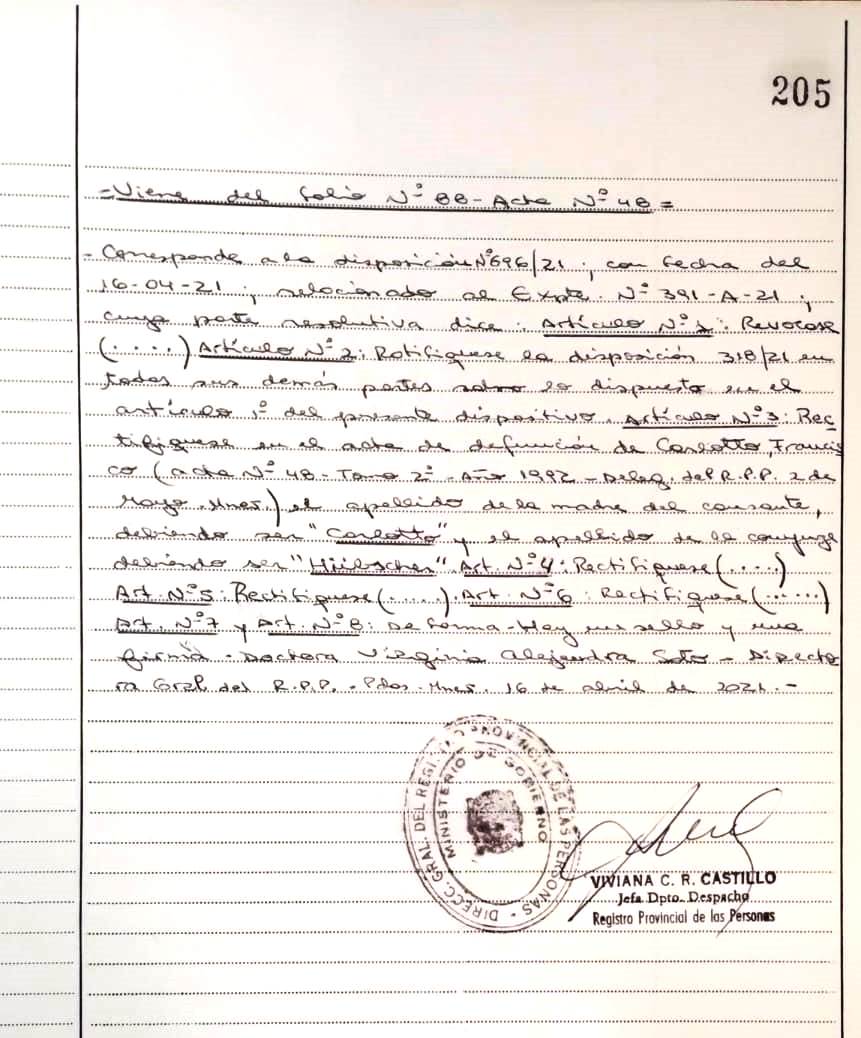 205
= Viene del folio Nº 88 - Acta Nº 48 =
- Corresponde a la disposición Nº 696/21 ; con fecha del
16-04-21 ; relacionado al Expte. Nº 391-A-21 ;
cuya parte resolutiva dice : Artículo Nº 1 : Revocase
(.....) Artículo Nº 2 : Ratifíquese la disposición 318/21 en
todas sus demás partes sobre lo dispuesto en el
artículo 1º del presente dispositivo. Artículo Nº 3 : Rec
tifíquese en el acta de defunción de Carlotto, Francis
co ( acta Nº 48 - Tomo 2º - Año 1992 - Deleg. del R.P.P. 2 de
Mayo - Mnes.) el apellido de la madre del causante,
debiendo ser "Carlotto" y el apellido de la conyuge
debiendo ser "Hübscher". Art. Nº 4 : Rectifíquese (.....)
Art. Nº 5 : Rectifíquese (.....). Art. Nº 6 : Rectifíquese (.....)
Art. Nº 7 y Art. Nº 8 : De forma - Hay un sello y una
firma - Doctora Virginia Alejandra Soto - Directo
ra Gral. del R.P.P. - Pdas. Mnes. 16 de abril de 2021.-
DIRECC. GRAL. DEL REGISTRO PROVINCIAL DE LAS PERSONAS
MINISTERIO DE GOBIERNO
VIVIANA C. R. CASTILLO
Jefa Dpto. Despacho
Registro Provincial de las Personas